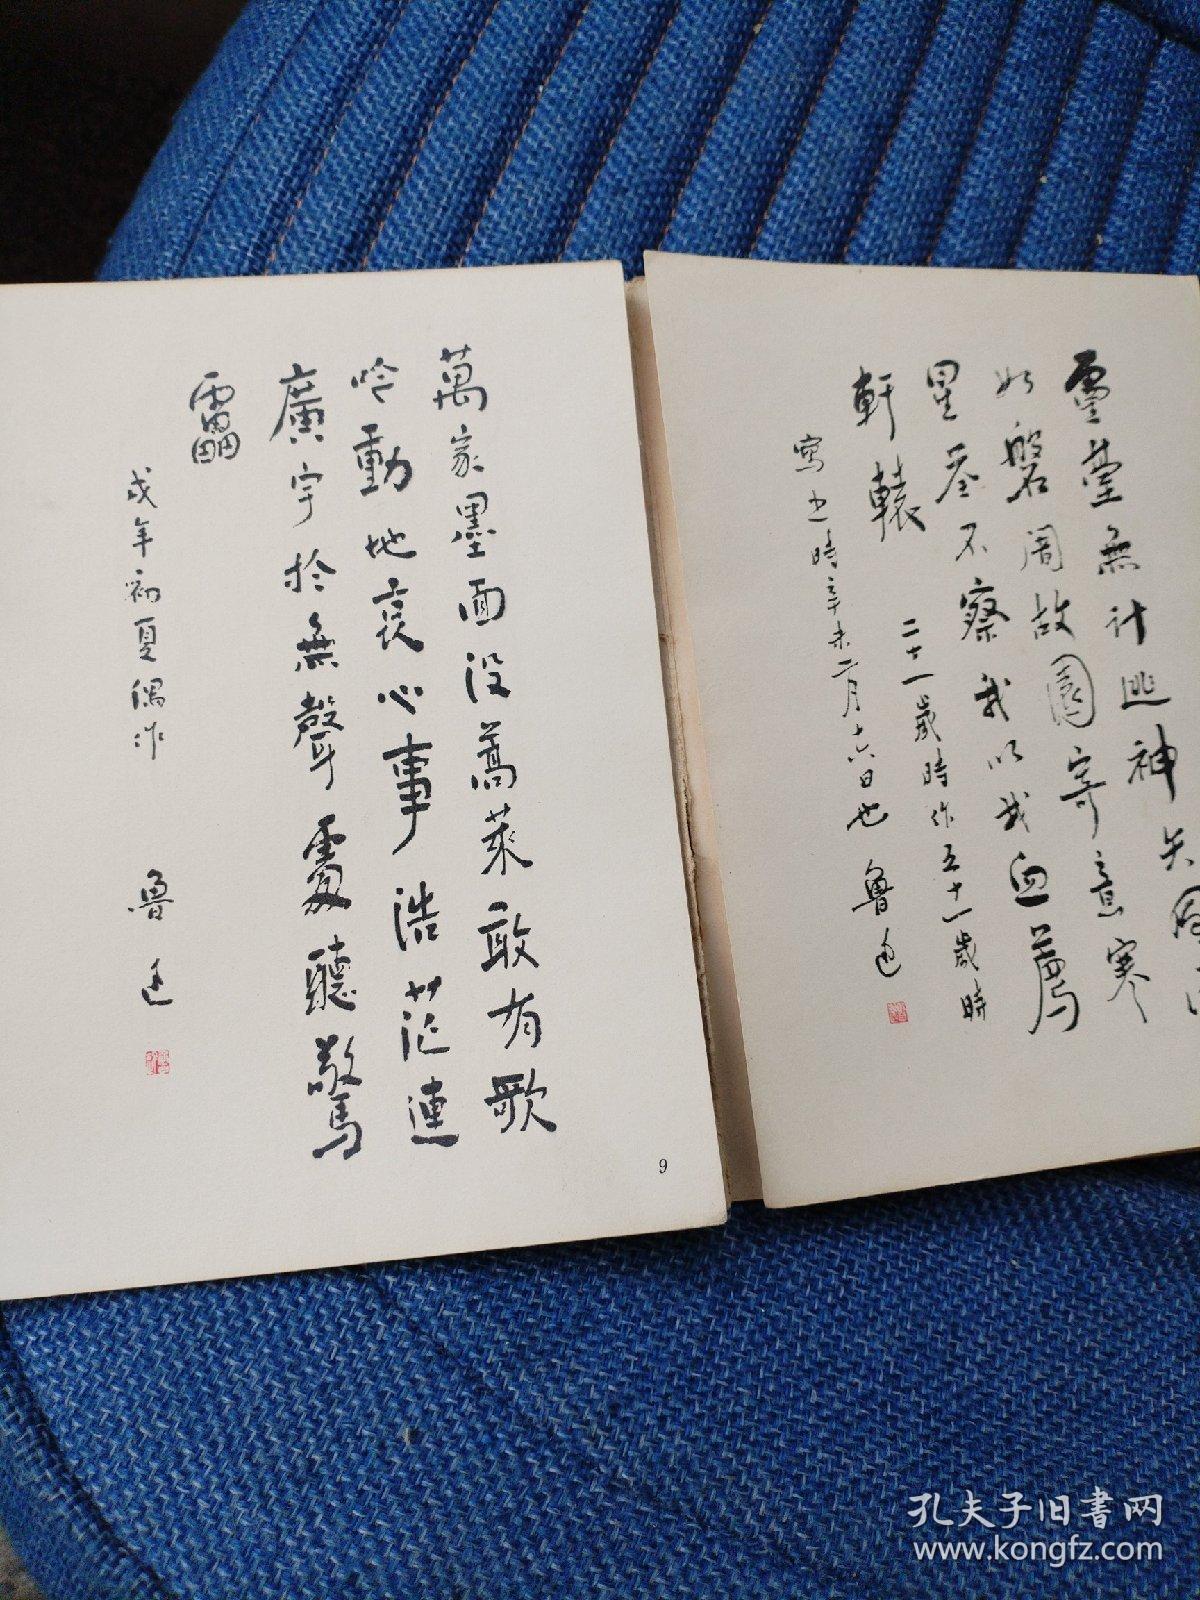 靈臺無計逃神矢風雨
如磐闇故園寄意寒
星荃不察我以我血薦
軒轅
二十一歲時作五十一歲時
寫之時辛未二月十六日也 魯迅
萬家墨面没蒿萊敢有歌
吟動地哀心事浩茫連
廣宇於無聲處聽驚
靁
戌年初夏偶作
魯迅
9
孔夫子旧書网
www.kongfz.com